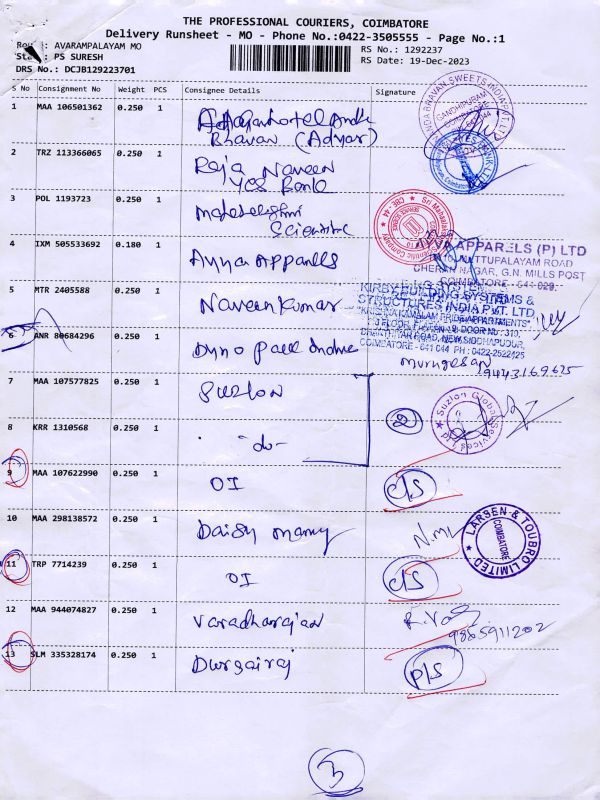 THE PROFESSIONAL COURIERS, COIMBATORE
Delivery Runsheet - MO - Phone No.:0422-3505555 - Page No.:1
: AVARAMPALAYAM MO
RS No.: 1292237
: PS SURESH
RS Date: 19-Dec-2023
DRS No.: DCJB129223701
S No Consignment No Weight PCS Consignee Details Signature
1 MAA 106501362 0.250 1
Bhavan (Adyar)
2 TRZ 113366065 0.250 1 Raja Naveen
Yes Bank
3 POL 1193723 0.250 1 Mahalakshmi
Scientific
4 IXM 505533692 0.180 1 Ayya Apparels
AYYA APPARELS (P) LTD
NATTUPALAYAM ROAD
CHERAN NAGAR, G.N. MILLS POST
COIMBATORE - 641 029.
5 MTR 2405588 0.250 1 Naveen Kumar
KIRBY BUILDING SYSTEMS &
STRUCTURES INDIA PVT. LTD.
COIMBATORE - 641 044 PH : 0422-2522425
6 ANR 80684296 0.250 1
Murugesan
9443169675
7 MAA 107577825 0.250 1 Suzlon
2
Suzlon Global Services Ltd
8 KRR 1310568 0.250 1 - do -
9 MAA 107622990 0.250 1 OI
C/S
10 MAA 298138572 0.250 1 Daisy
LARSEN & TOUBRO LIMITED
COIMBATORE
11 TRP 7714239 0.250 1 OI
C/S
12 MAA 944074827 0.250 1 Varadharajan
9865911202
13 SLM 335328174 0.250 1 Durgairaj
P/S
3